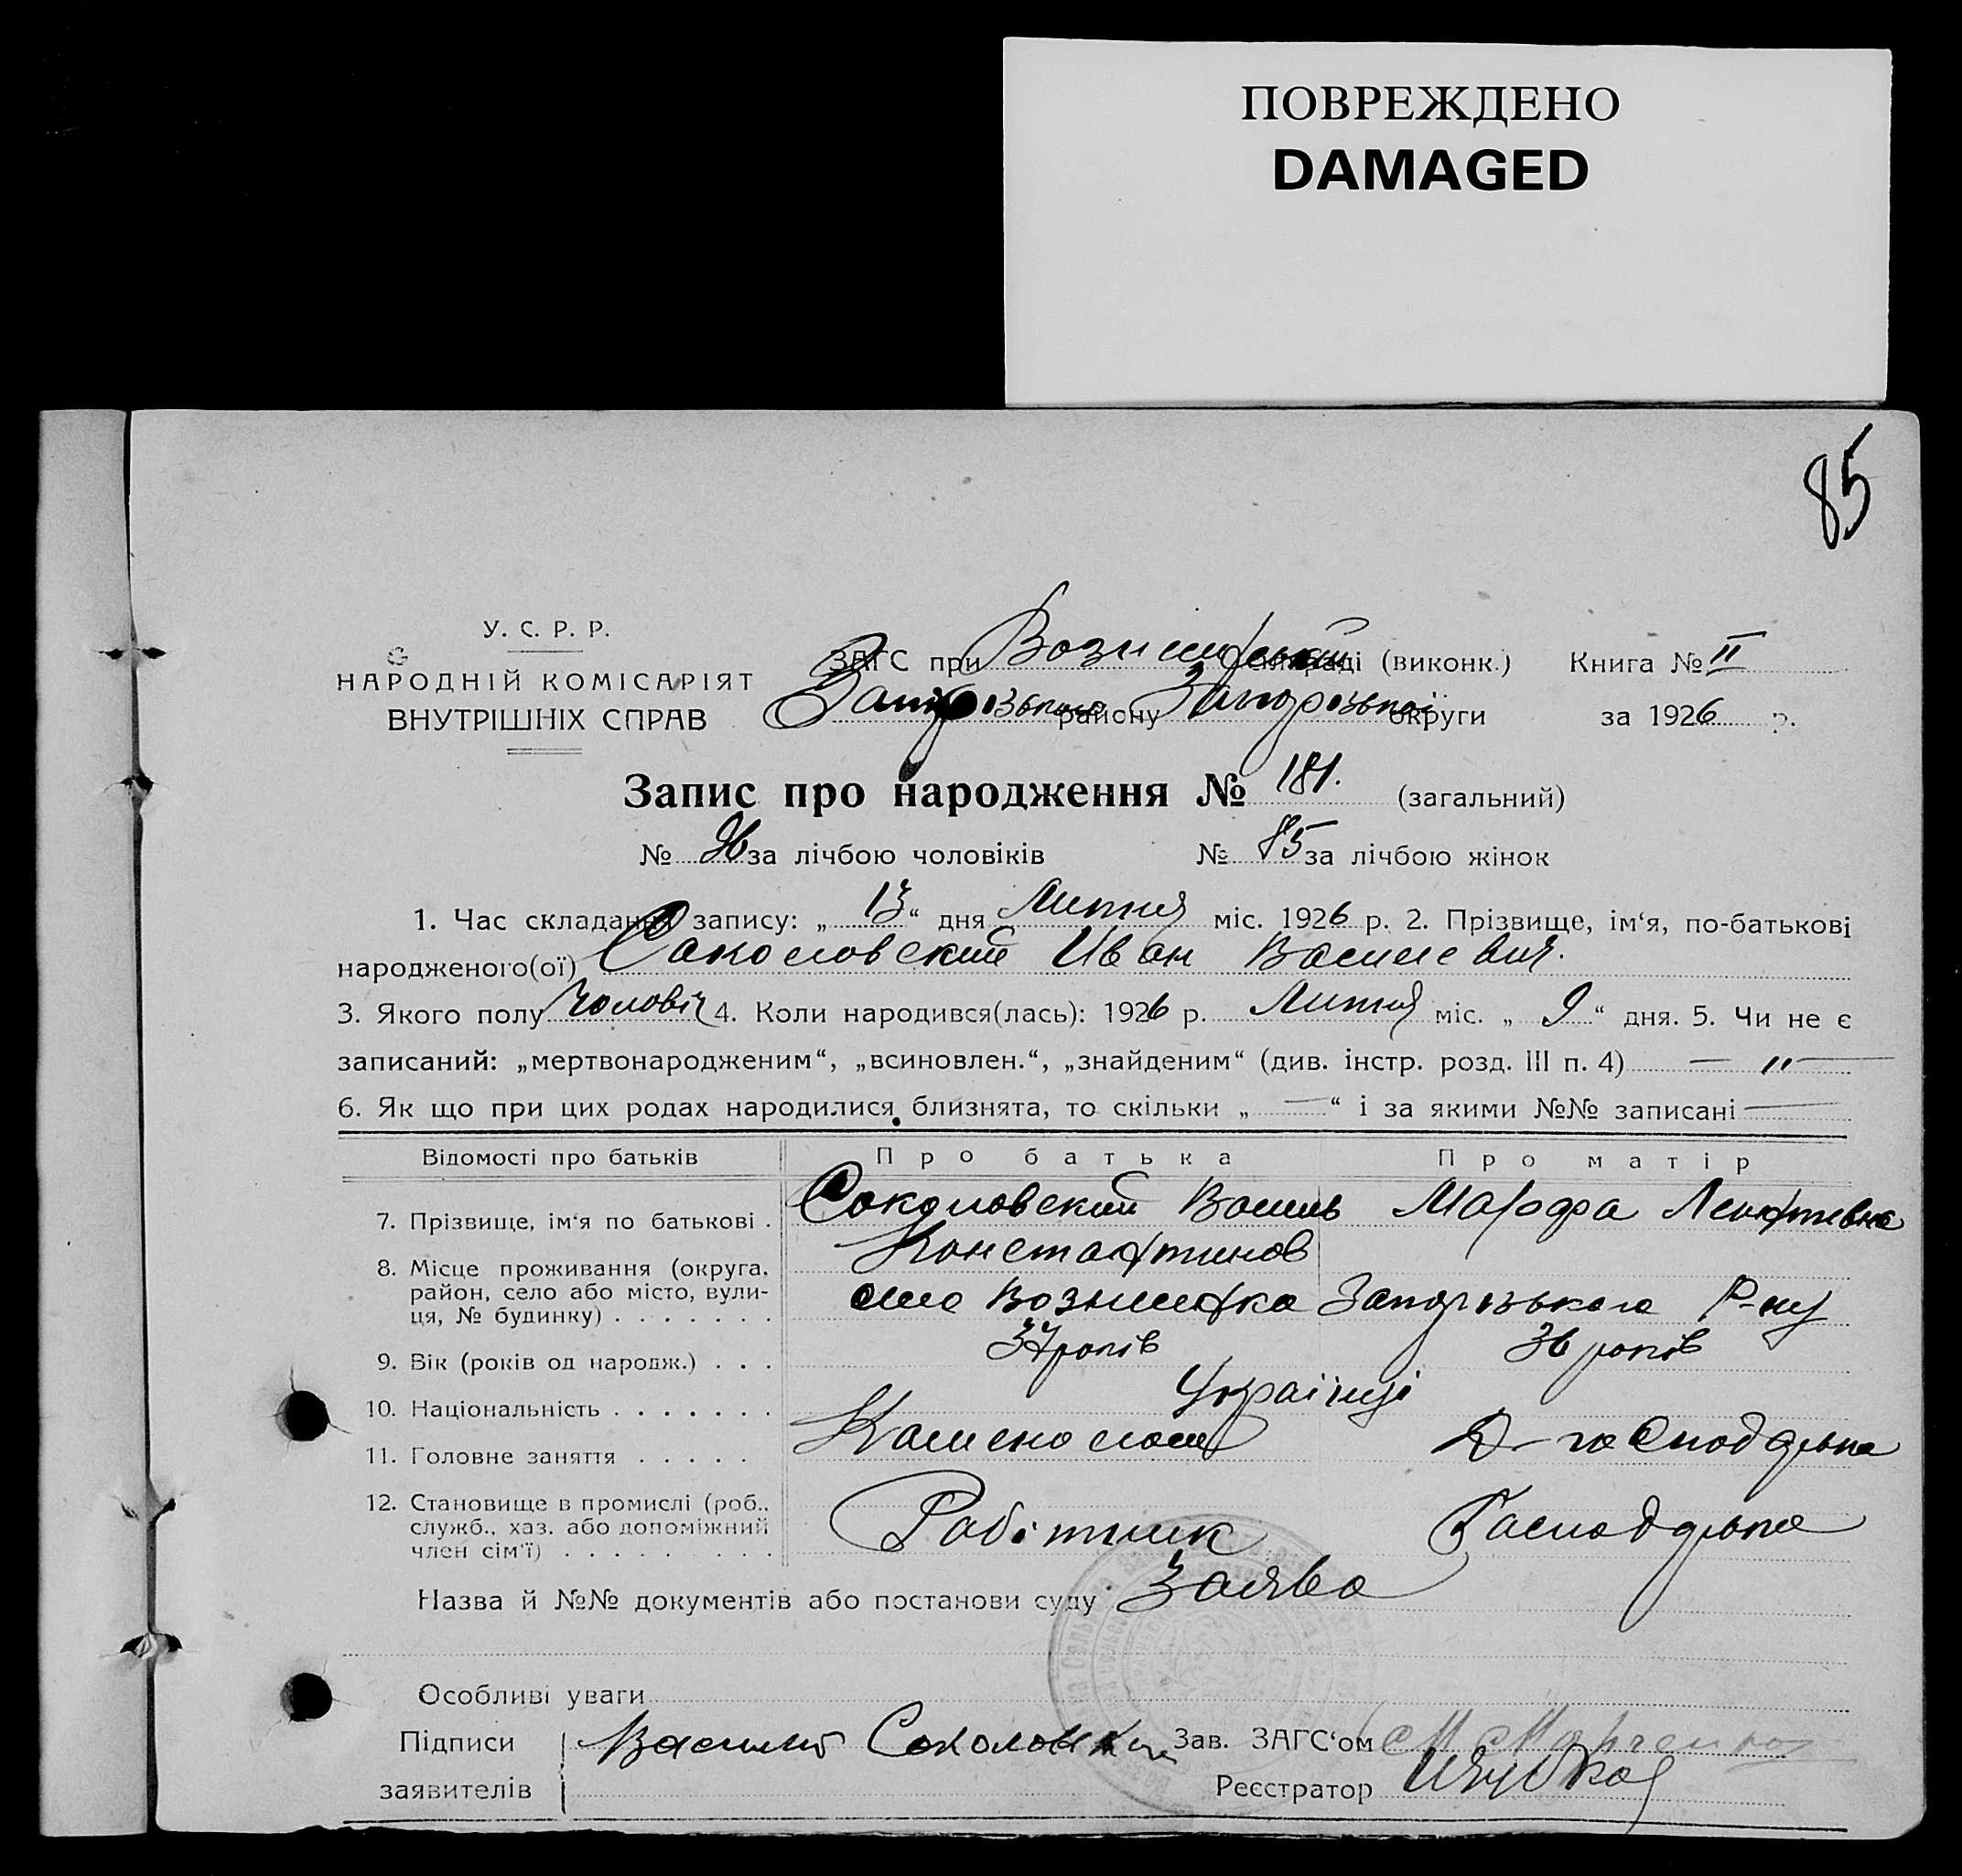 ПОВРЕЖДЕНО
DAMAGED
85
У. С. Р. Р.
НАРОДНІЙ КОМІСАРІЯТ
ВНУТРІШНІХ СПРАВ
ЗАГС при сільраді (виконк.) Книга № II
Запорізького району Запорізької округи за 1926 р.
Запис про народження № 181. (загальний)
№ 96 за лічбою чоловіків № 85 за лічбою жінок
1. Час складання запису: „ 13 “ дня Лютня міс. 1926 р. 2. Прізвище, ім‘я, по-батькові
народженого(ої) Сокословский Иван Василевич.
3. Якого полу чоловіч 4. Коли народився(лась): 1926 р. Лютня міс. „ 9 “ дня. 5. Чи не є
записаний: „мертвонародженим“, „всиновлен.“, „знайденим“ (див. інстр. розд. III п. 4) — „ —
6. Як що при цих родах народилися близнята, то скільки „ — “ і за якими №№ записані —
Відомості про батьків Про батька Про матір
7. Прізвище, ім‘я по батькові . Соколовский Василь Марфа Леонтиевна
Константинов
8. Місце проживання (округа, район, село або місто, вулиця, № будинку) . . . . . . . село Вознесенка Запорізького Р-ну
9. Вік (років од народж.) . . . 37 років 36 років
10. Національність . . . . . . . Українці
11. Головне заняття . . . . . Каменолом Д-господарька
12. Становище в промислі (роб.,
служб., хаз. або допоміжний
член сім‘ї) . . . . . . . . . Робітник Господарька
Назва й №№ документів або постанови суду Заява
Особливі уваги
Підписи Василий Соколовский Зав. ЗАГС‘ом
заявителів Реєстратор